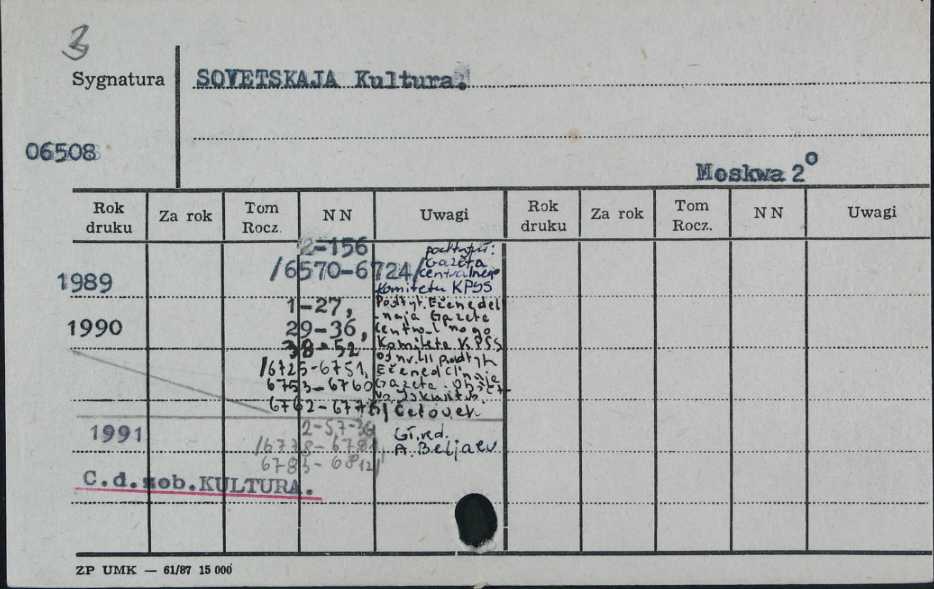 3
Sygnatura
SOVETSKAJA Kultura.
06508
Moskwa 2°
Rok druku Za rok Tom Rocz. NN Uwagi Rok druku Za rok Tom Rocz. NN Uwagi
2-156
/6570-6724/ Gazeta
centralnego
1989 Komitetu KPSS
1-27, Podtyt. Eženedel
-naja Gazeta
1990 29-36, Central'nogo
38-52 Komiteta KPSS
/6725-6751, Eženedel'naja
6753-6760 Gazeta
6762-6776/ Čelovek
1991 2-57-
Gł. red.
/6778-6781, A. Beljaev
6783-6812/
C.d.zob.KULTURA.
ZP UMK — 61/87 15 000